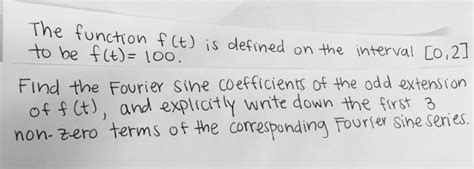 The function f(t) is defined on the interval [0,2]
to be f(t)= 100.
Find the Fourier sine coefficients of the odd extension
of f(t), and explicitly write down the first 3
non-zero terms of the corresponding Fourier sine series.